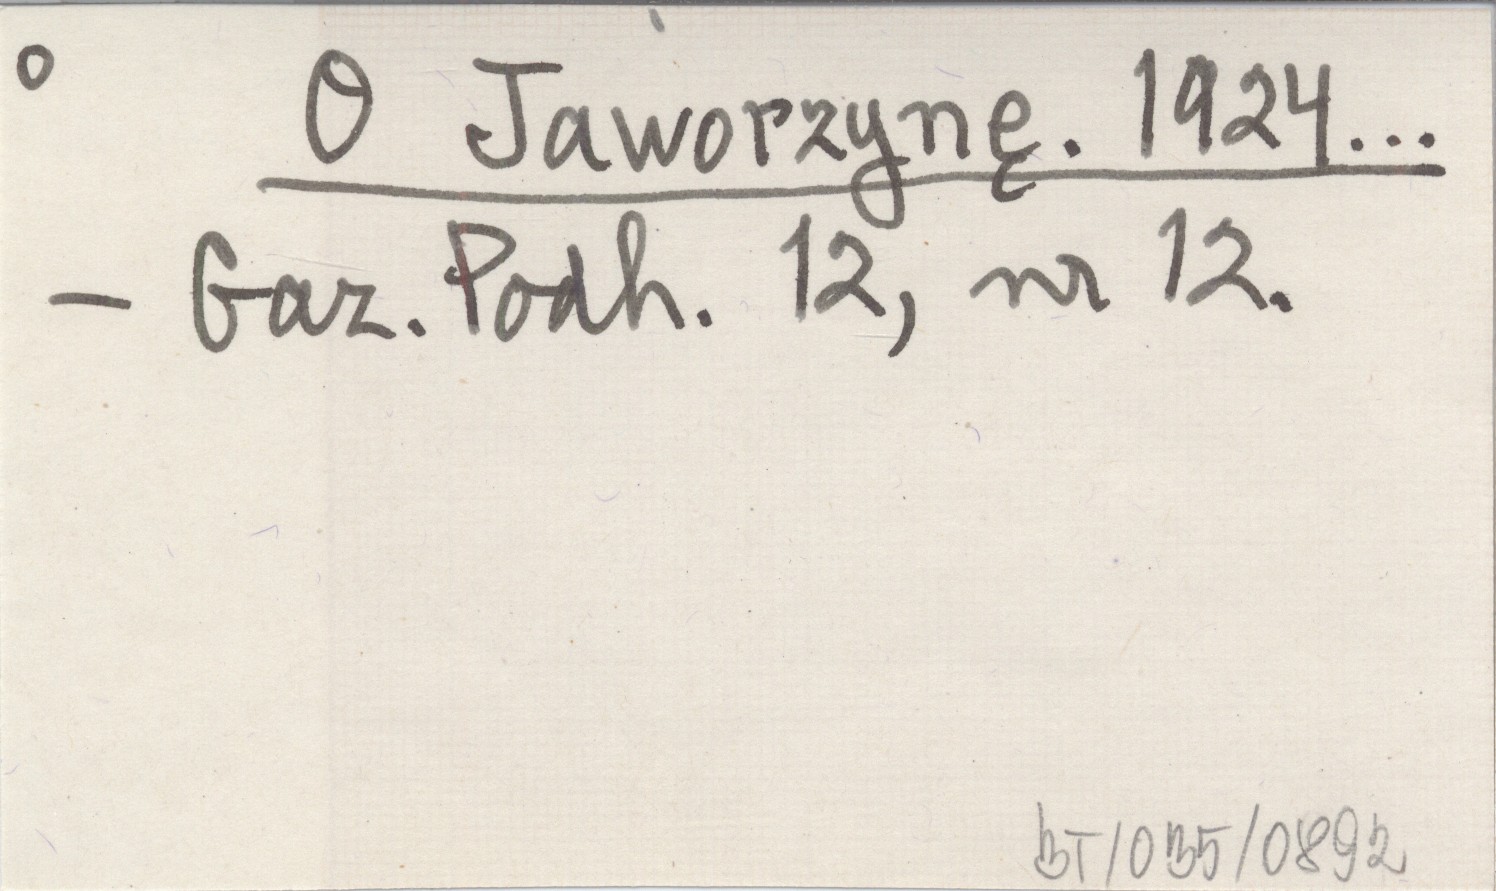 ° O Jaworzynę. 1924...
— Gaz. Podh. 12, nr 12.
BT/035/0892